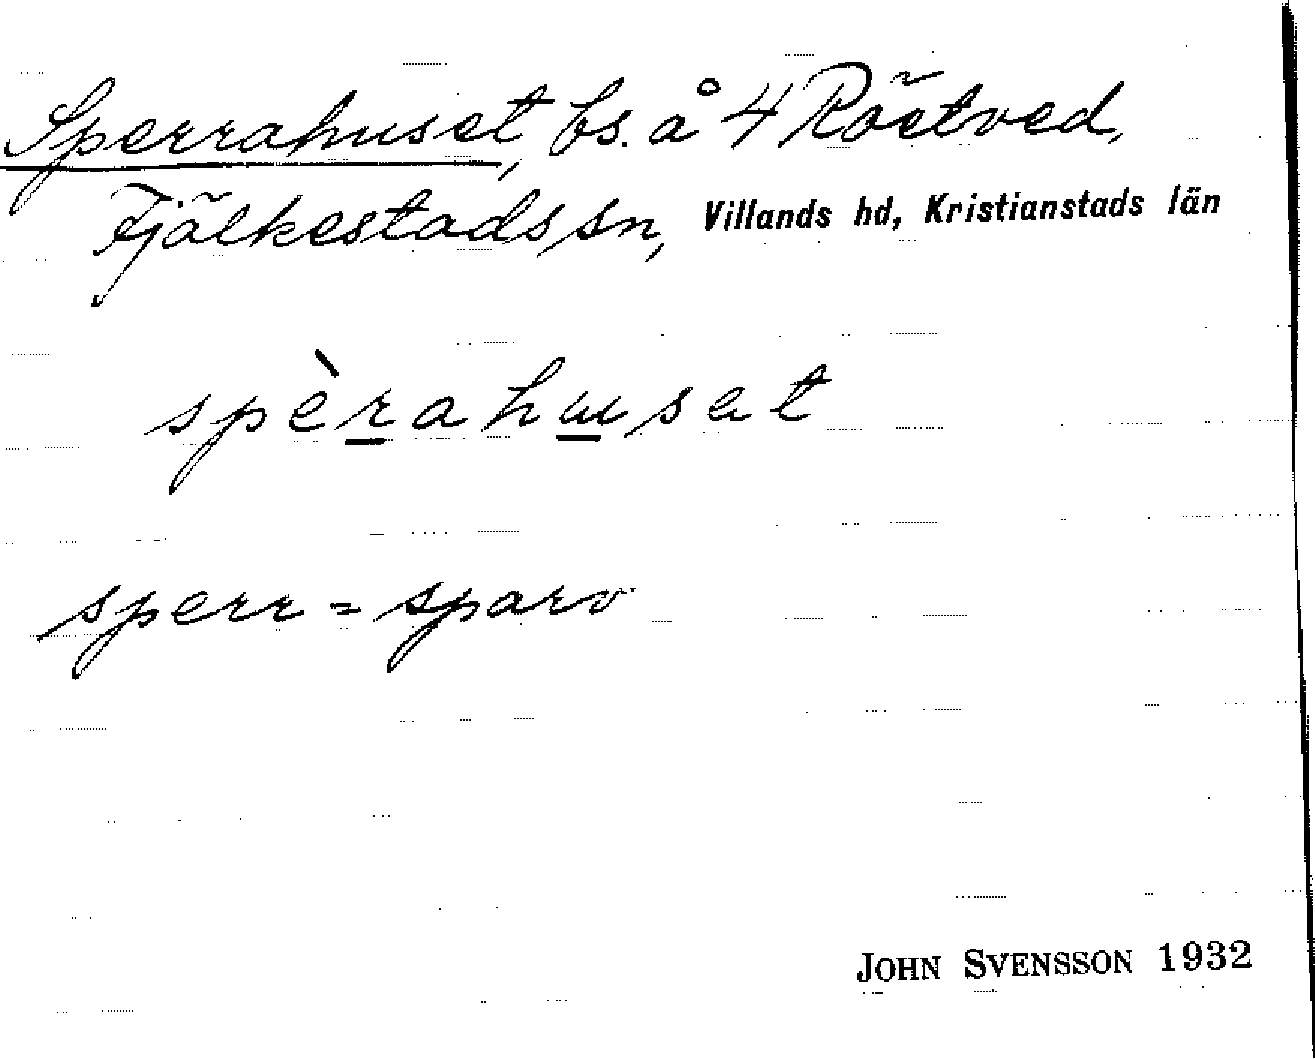 Sperrahuset, bs. å 4 Röetved,
Fjälkestads sn, Villands hd, Kristianstads län
spèrahusat
sperr = sparv
JOHN SVENSSON 1932